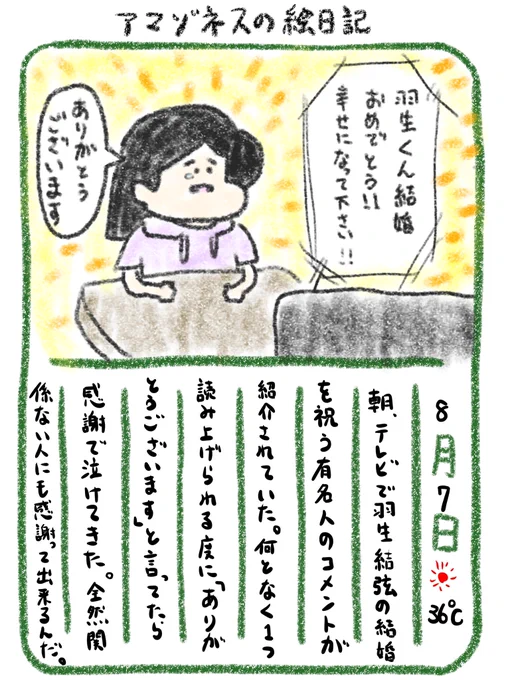 アマゾネスの絵日記
羽生くん結婚
おめでとう!!
幸せになって下さい!!
ありがとう
ございます
8月7日
36℃
朝、テレビで羽生結弦の結婚
を祝う有名人のコメントが
紹介されていた。何となく1つ
読み上げられる度に「ありが
とうございます」と言ってたら
感謝で泣けてきた。全然関
係ない人にも感謝って出来るんだ。